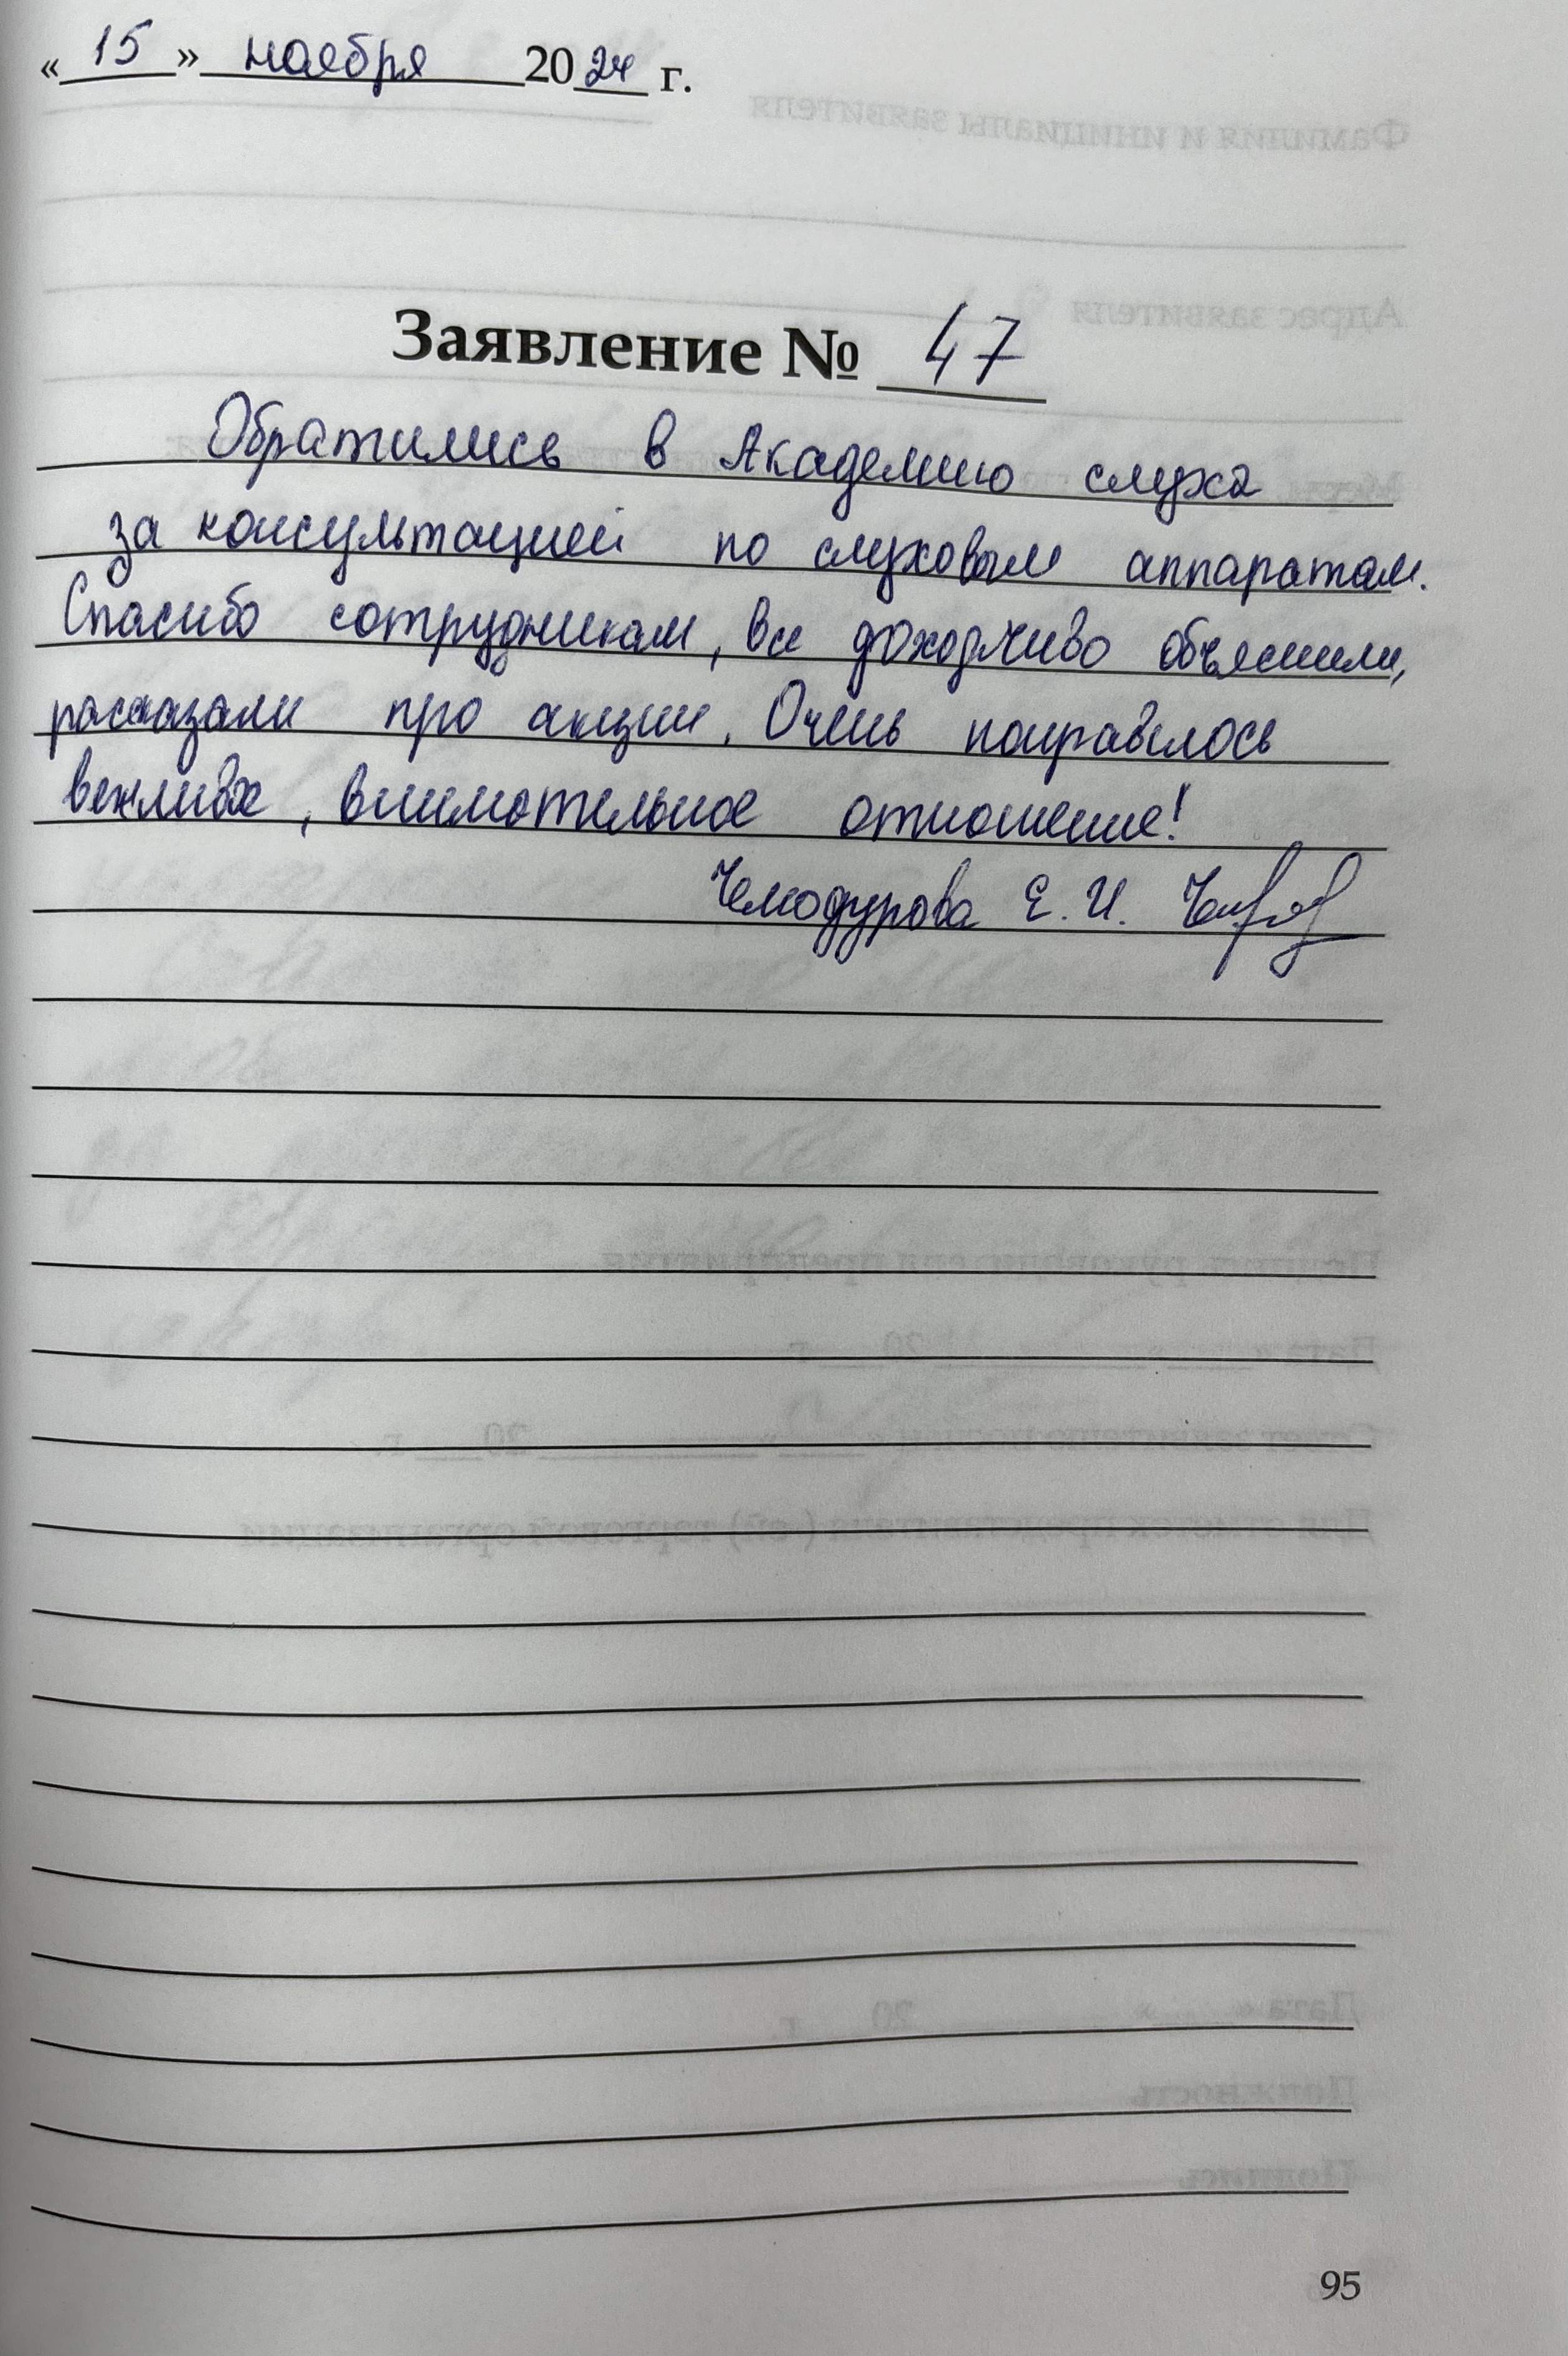 « 15 » ноября 2024 г.
Заявление № 47
Обратились в Академию слуха
за консультацией по слуховым аппаратам.
Спасибо сотрудникам, все доходчиво объяснили,
рассказали про акции. Очень понравилось
вежливое, внимательное отношение!
Чемодурова Е. И.
95